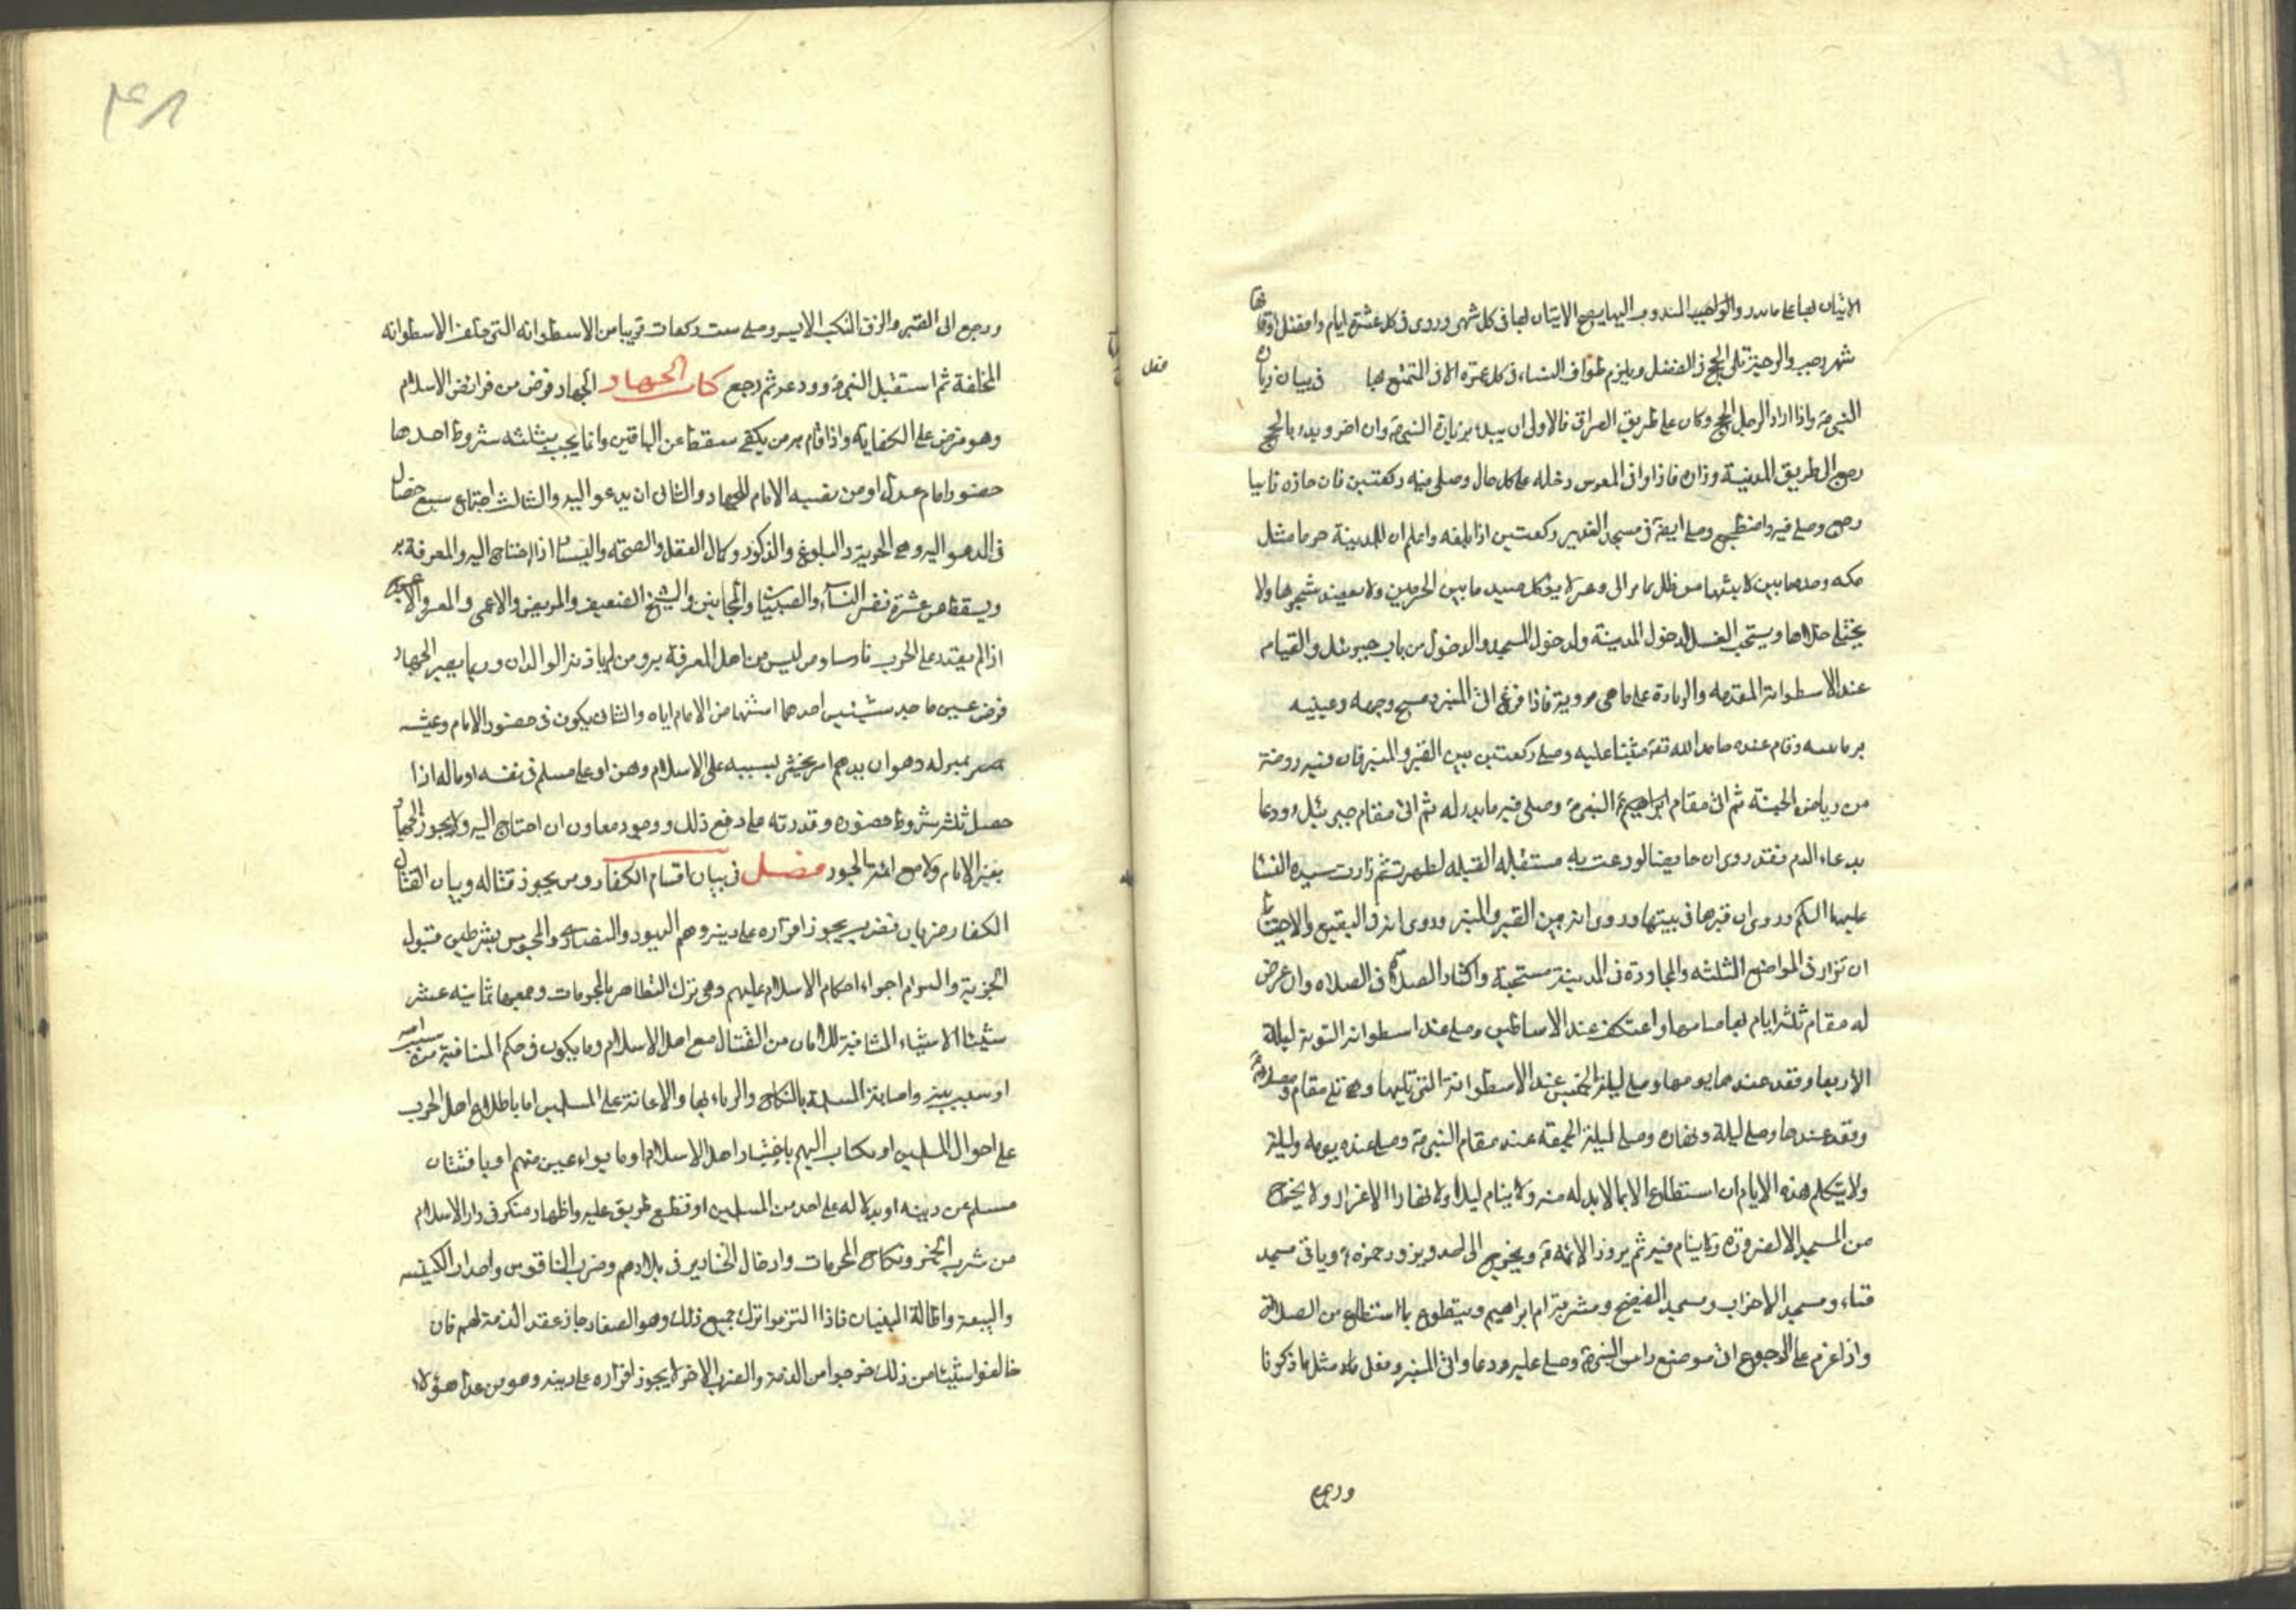 الاتيان بها على ما نذر والواجب المندوب اليها يصح الاتيان بها فى كل شهر وروى فى كل عشرة ايام وافضل اوقاتها
شهر رجب والرجبية تلى الحج فى الفضل ويلزم طواف النساء فى كل عمرة الا فى التمتع بها فى بيان زيارة
فصل
النبى ص واذا اراد الرجل الحج وكان على طريق العراق فالاولى ان يبدء بزيارة النبى ص وان اخر وبدء بالحج
رجع الى طريق المدينة وزاره فاذا وافى المعرس دخله على كل حال وصلى فيه ركعتين فان جازه ناسيا
رجع وصلى فيه واضطجع وصلى ايضا فى مسجد الغدير ركعتين اذا بلغه واعلم ان للمدينة حرما مثل
مكه وحدها بين لابتيها من ظل عاير الى وعير لا يؤكل صيد ما بين الحرمين ولا يعضد شجرها ولا
يختلى خلاها ويستحب الغسل لدخول المدينة ولدخول المسجد والدخول من باب جبرئيل والقيام
عند الاسطوانة المقدمه والزيارة على ما هى مروية فاذا فرغ اتى المنبر ومسح وجهه وعينيه
برمانتيه وقام عنده حامدا لله تعالى مثنيا عليه وصلى ركعتين بين القبر والمنبر فان فيه روضة
من رياض الجنة ثم اتى مقام ابراهيم النبى ص وصلى فيه ما بدء له ثم اتى مقام جبرئيل ودعا
بدعاء الدم فقد روى ان حايضا لو دعت به مستقبله القبله لطهرت ثم زارت سيده النسا
عليها السلم وروى ان قبرها فى بيتها وروى انه بين القبر والمنبر وروى انه فى البقيع والاحتياط
ان تزار فى المواضع الثلثه والمجاورة فى المدينة مستحبة واكثار الصلاة فى الصلاه وان عرض
له مقام ثلثه ايام بها صامها واعتكف عند الاساطين وصلى عند اسطوانه التوبة ليلة
الاربعا وقعد عندها يومها وصلى ليلة الخميس عند الاسطوانة التى تليها وهى تلى مقام ومصلاه ص
وقعد عندها وصلى ليلة ونهاره وصلى ليلة الجمعه عند مقام النبى ص وصلى عنده يومه وليلة
ولا يتكلم هذه الايام ان استطاع الا بما لا بد له منه ولا ينام ليلا ولا نهارا الا غرارا ولا يخرج
من المسجد الا لضرورة ولا ينام فيه ثم يزور الائمة ع ويخرج الى احد ويزور حمزه ع وياتى مسجد
قباء ومسجد الاحزاب ومسجد الفضيخ ومشربة ام ابراهيم ويتطوع بما استطاع من الصلاة
واذا عزم على الرجوع اتى موضع راس النبى ص وصلى عليه ودعا واتى المنبر وفعل مثل ما ذكرنا
ورجع
ورجع الى القبر والزق المنكب الايسر وصلى ست ركعات قريبا من الاسطوانه التى خلف الاسطوانه
المخلفة ثم استقبل النبى ص وودعه ثم رجع كتاب الجهاد الجهاد فرض من فرائض الاسلام
وهو فرض على الكفاية واذا قام به من يكفى سقط عن الباقين وانما يجب بثلثه شروط احدها
حضور امام عدل او من نصبه الامام للجهاد والثانى ان يدعو اليه والثالث اجتماع سبع خصال
فى المدعو اليه وهى الحرية والبلوغ والذكور وكمال العقل والصحه واليسار اذا احتاج اليه والمعرفة به
ويسقط عن عشرة نفر النساء والصبيان والمجانين والشيخ الضعيف والمريض والاعمى والمعسر والاعرج
اذا لم يقتدر على الحرب فارسا ومن ليس من اهل المعرفة به ومن لم ياذن له الوالدان وربما يصير الجهاد
فرض عين باحد شيئين احدهما استنهاض الامام اياه والثانى يكون فى حضور الامام وغيبته
بمنزله وهو ان يدهم امر يخشى بسببه على الاسلام وهن او على مسلم فى نفسه او ماله اذا
حصل ثلثه شروط حضوره وقدرته على دفع ذلك ووجود معاون ان احتاج اليه ولا يجوز الجهاد
بغير الامام ولا مع ائمه الجور فصل فى بيان اقسام الكفار ومن يجوز قتاله وبيان القتال
الكفار ضربان فضرب يجوز اقراره على دينه وهم اليهود والنصارى والمجوس بشرطين قبول
الجزية والتزام اجراء احكام الاسلام عليهم وهى ترك التظاهر بالمحرمات وجميعها ثمانيه عشر
شيئا الاشياء المنافية للامان من القتال مع اهل الاسلام وما يكون فى حكم المنافية من سب الله
او سب نبيه واصابة المسلمة بالنكاح والزناء بها والاعانة على المسلمين اما باطلاع اهل الحرب
على احوال المسلمين او بكتاب اليهم باخبار اهل الاسلام او بايواء عين منهم او بافتتان
مسلم عن دينه او بدلاله على احد من المسلمين او قطع طريق عليه واظهار منكر فى دار الاسلام
من شرب الخمر ونكاح المحرمات وادخال الخنازير فى بلادهم وضرب الناقوس واحداث الكنيسه
والبيعة واطالة البنيان فاذا التزموا ترك جميع ذلك وهو الصغار جاز عقد الذمة لهم فان
خالفوا شيئا من ذلك خرجوا من الذمة والضرب الاخر لا يجوز اقراره على دينه وهو من عدا هؤلاء